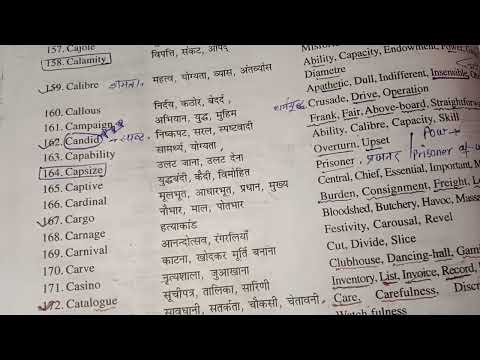 157. Cajole
158. Calamity विपत्ति, संकट, आपद्
159. Calibre महत्व, योग्यता, व्यास, अंतर्व्यास Ability, Capacity, Endowment, Power,
Diametre
160. Callous निर्दय, कठोर, बेदर्द Apathetic, Dull, Indifferent, Insensible,
161. Campaign अभियान, युद्ध, मुहिम Crusade, Drive, Operation
162. Candid निष्कपट, सरल, स्पष्टवादी Frank, Fair, Above-board, Straightforw
163. Capability सामर्थ्य, योग्यता, Ability, Calibre, Capacity, Skill
164. Capsize उलट जाना, उलट देना Overturn, Upset
165. Captive युद्धबंदी, कैदी, विमोहित Prisoner, Prisoner of
166. Cardinal मूलभूत, आधारभूत, प्रधान, मुख्य Central, Chief, Essential, Important,
167. Cargo नौभार, माल, पोतभार Burden, Consignment, Freight,
168. Carnage हत्याकांड Bloodshed, Butchery, Havoc,
169. Carnival आनन्दोत्सव, रंगरलियाँ Festivity, Carousal, Revel
170. Carve काटना, खोदकर मूर्ति बनाना Cut, Divide, Slice
171. Casino नृत्यशाला, जुआखाना Clubhouse, Dancing-hall,
172. Catalogue सूचीपत्र, तालिका, सारिणी Inventory, List, Invoice, Record,
सावधानी, सतर्कता, चौकसी, चेतावनी, Care, Carefulness,